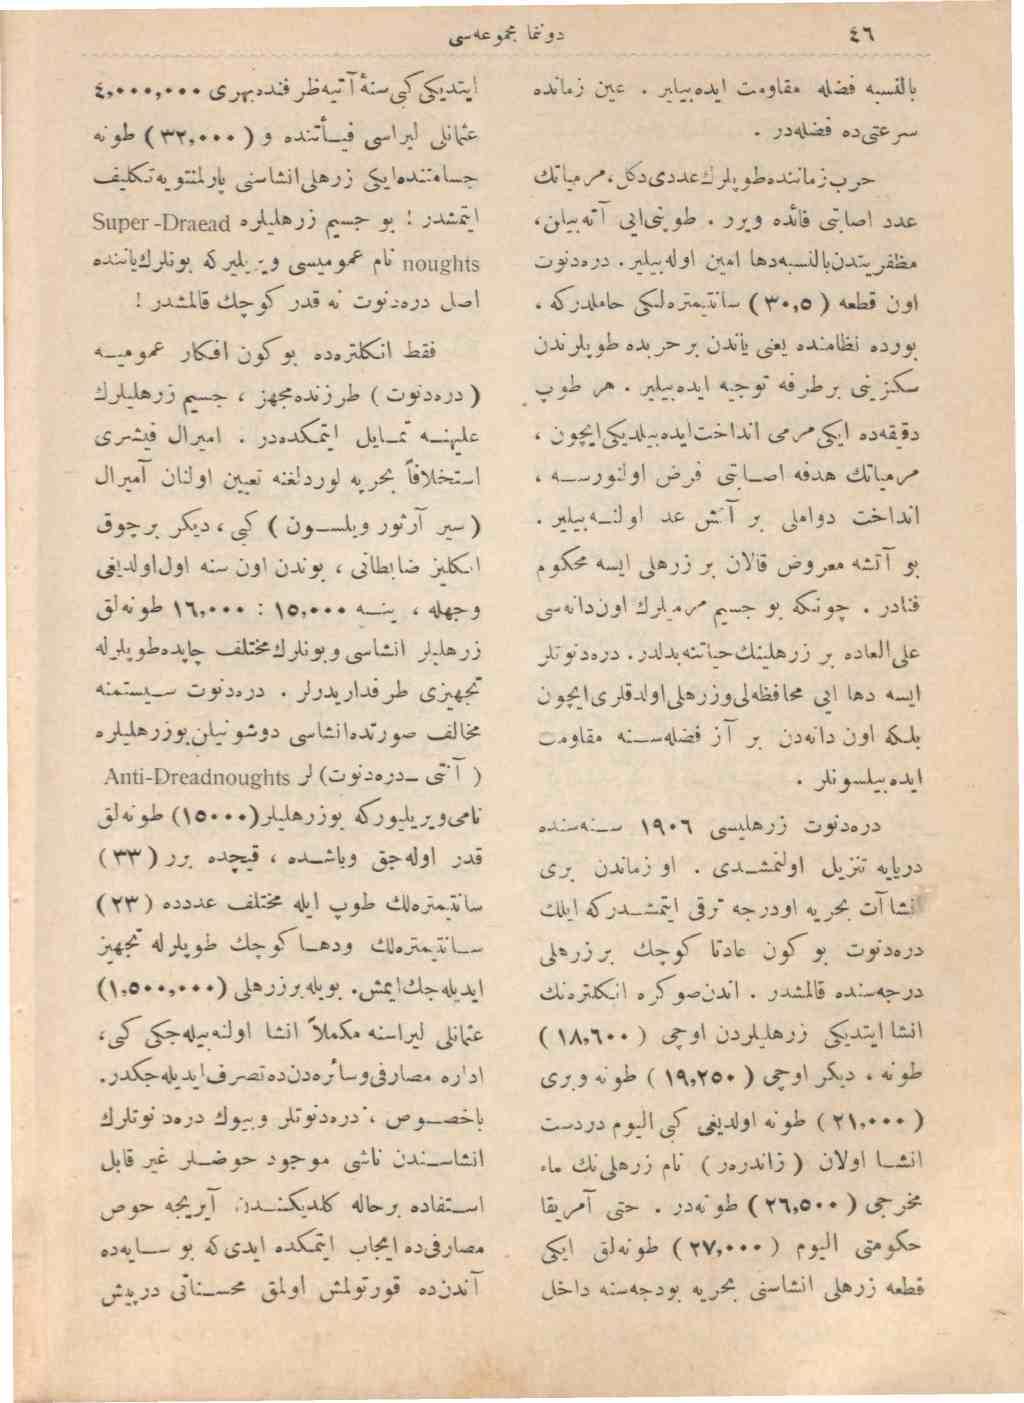 ٤٦
دوننما مجموعه‌سی
بالنسبه فضله مقاومت ایده‌بیلیر . عین زمانده
سرعتی‌ده فضله‌در .
حرب زماننده طوپلرك عددی دكل، مرمیاتك
عدد اصابتی فائده ویرر . طوپنی‌ایی آته‌بیلن،
مظفریتدن‌بالنسبه‌دها امین اوله‌بیلیر. دره‌دنوت
اون قطعه ( ٣٠,٥ ) سانتیمتره‌لیکی حاملدرکه ،
بورده نظامنده یعنی یاندن بر حربده طوپلرندن
سکزینی برطرفه توجیه ایده‌بیلیر . هر طوپ
دقیقه‌ده ایکی‌مرمی انداخت‌ایده‌بیلدیکی‌ایچون ،
مرمیاتك هدفه اصابتی فرض اولنورسه ،
انداخت دواملی بر آتش عد اولنه‌بیلیر .
بو آتشه معروض قالان بر زرهلی ایسه محکوم
فنادر . چونکه بو جسیم مرمیلرك اون‌دانه‌سی
علی‌العاده بر زرهلینك‌حیاتنه‌بدلدر. دره‌دنوتلر
ایسه دها ایی محافظه‌لی‌وزرهلی‌اولدقلری‌ایچون
بلکه اون دانه‌دن بر آز فضله‌سنه مقاومت
ایده‌بیلسونلر .
دره‌دنوت زرهلیسی ١٩٠٦ سنه‌سنده
دریایه تنزیل اولنمشدی . او زماندن بری
انشاآت بحریه اودرجه ترقی ایتمشدرکه ایلك
دره‌دنوت بو کون عادتا کوچك بر زرهلی
درجه‌سنده قالمشدر . اندن‌صوکره انکلتره‌نك
انشا ایتدیکی زرهلیلردن اوچی ( ١٨,٦٠٠ )
طونه ، دیکر اوچی ( ١٩,٢٥٠ ) طونه وبری
( ٢١,٠٠٠ ) طونه اولدیغی کبی الیوم دردست
انشا اولان ( زاندره‌ر ) نام زرهلی‌نك ماء
مخرجی ( ٢٦,٥٠٠ ) طونه‌در . حتی آمریقا
حکومتی الیوم ( ٢٧,٠٠٠ ) طونه‌لق ایکی
قطعه زرهلی انشاسنی بحریه بودجه‌سنه داخل
ایتدیکی‌کبی‌سنهٔ آتیه‌ظرفنده‌بهری ٤,٠٠٠,٠٠٠
عثمانلی لیراسی فیأتنده و ( ٣٢,٠٠٠ ) طونه
جسامتنده‌ایکی زرهلی‌انشاسنی پارلمنتویه‌تکلیف
ایتمشدر ! بو جسیم زرهلیلره Super -Draead
noughts نام عمومیسی ویریلیرکه بونلرك‌یاننده
اصل دره‌دنوت نه قدر کوچك قالمشدر !
فقط انکلتره‌ده بوکون افکار عمومیه
( دره‌دنوت ) طرزنده‌مجهز ، جسیم زرهلیلرك
علیهنه تمایل ایتمکده‌در . امیرال فیشری
استخلافاً بحریه لوردلغنه تعیین اولنان آمیرال
( سیر آرثور ویلسون ) کبی ، دیکر برچوق
انکلیز ضابطانی ، بوندن اون سنه اول‌اولدیغی
وجهله ، ینه ١٥,٠٠٠ : ١٦,٠٠٠ طونه‌لق
زرهلیلر انشاسی وبونلرك‌مختلف چاپده‌طوپلرله
تجهیزی طرفداریدرلر . دره‌دنوت سیستمنه
مخالف صورتده‌انشاسی دوشونیلن‌بوزرهلیلره
( آنتی ـ‌دره‌دنوت) لر Anti-Dreadnoughts
نامی‌ویریلیورکه بوزرهلیلر(١٥٠٠٠) طونه‌لق
قدر اوله‌جق وباشده ، قیچده برر ( ٣٣ )
سانتیمتره‌لك طوپ ایله مختلف عددده ( ٢٣ )
سانتیمتره‌لك ودها کوچك طوپلرله تجهیز
ایدیله‌جك‌ایمش. بویله‌برزرهلی (١,٥٠٠,٠٠٠)
عثمانلی لیراسنه مکملاً انشا اولنه‌بیله‌جکی کبی،
اداره مصارفی‌وسائره‌دن‌ده‌تصرف‌ایدیله‌جکدر.
باخصوص ، دره‌دنوتلر وبیوك دره‌دنوتلرك
انشاسندن ناشی موجود حوضلر غیر قابل
استفاده برحاله کلدیکندن آیریجه حوض
مصارفی‌ده ایجاب ایتمکده ایدی‌که بو سایه‌ده
آندن‌ده قورتولمش اولمق محسناتی درپیش